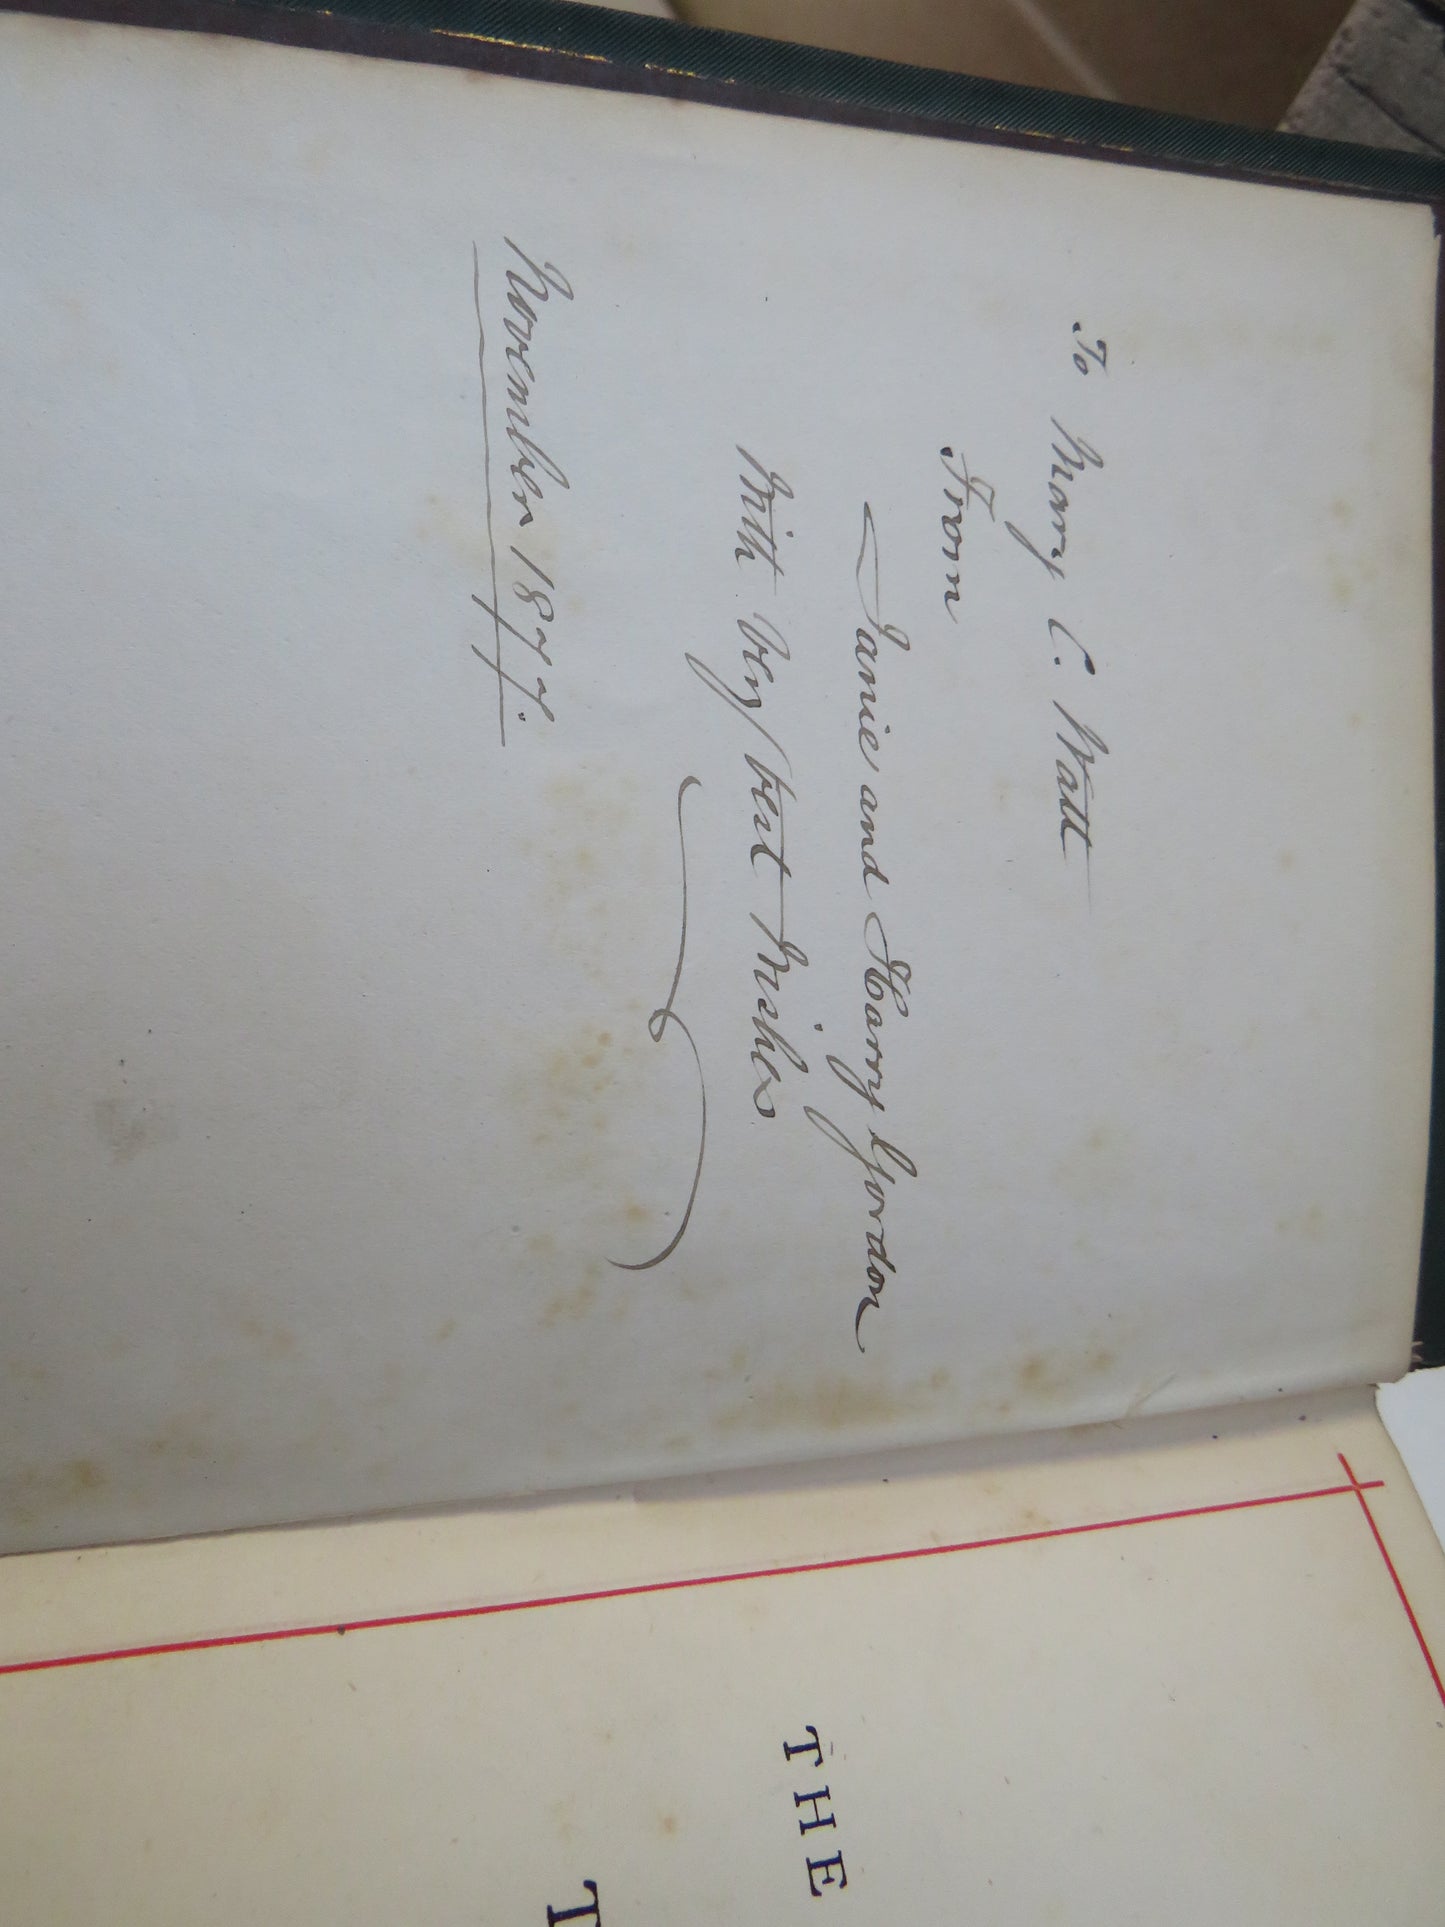 To Mary C. Watt
From
Janie and Harry Gordon
With very best Wishes
November 1877.
THE
T